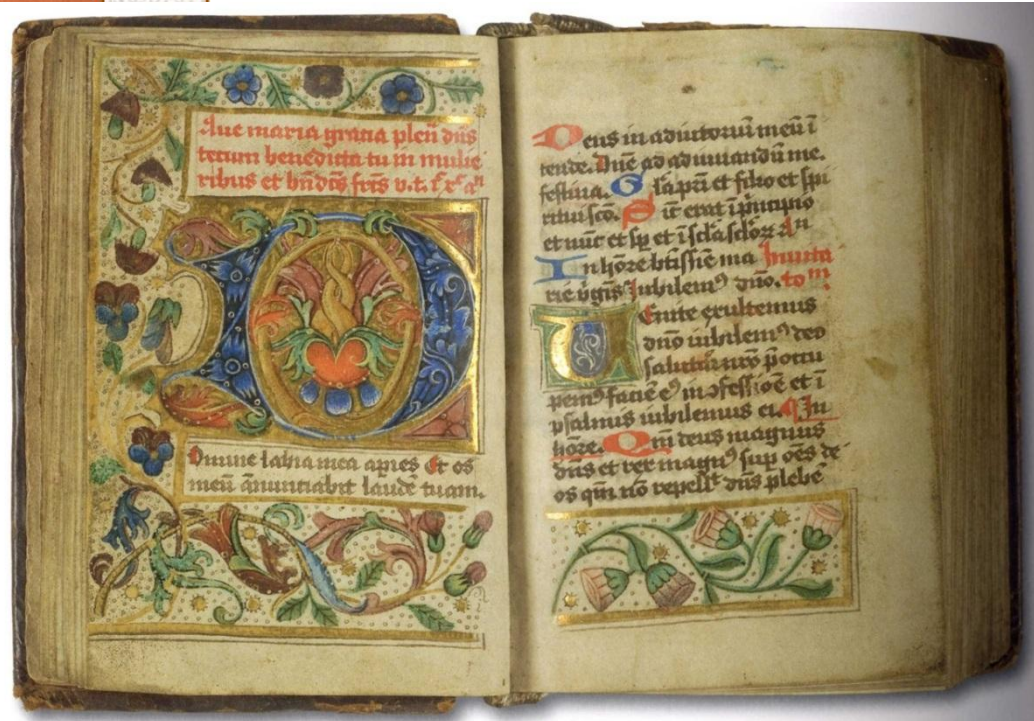 Aue maria gratia plen̄ dn̄s
tecum benedicta tu in mulie
ribus et bn̄dc̄s fr̄s v.t.
Omine labia mea apies Et os
meū ānunciabit laudē tuam.
Deus in adiutoriū meū ī
tende. Dn̄e ad adiuuandū me.
festina. Gla pr̄i et filio et spi
ritui sco. Sic̄ erat ī pͥncipio
et nūc et sp̄ et ī scl̄a scl̄oꝝ an
In hōre btīssīe ma Inuita
rie v̄gīs Iubilemꝰ dn̄o. to m
Uenite exultemus
dn̄o iubilemꝰ deo
salutari nr̄o p̄occu
pemꝰ faciē eꝰ in ɔfessiōē et ī
psalmis iubilemus ei. In
hōre. Qm̄ deus magnus
dn̄s et rex magnꝰ sup̄ oēs de
os qm̄ nō repellt dn̄s plebē